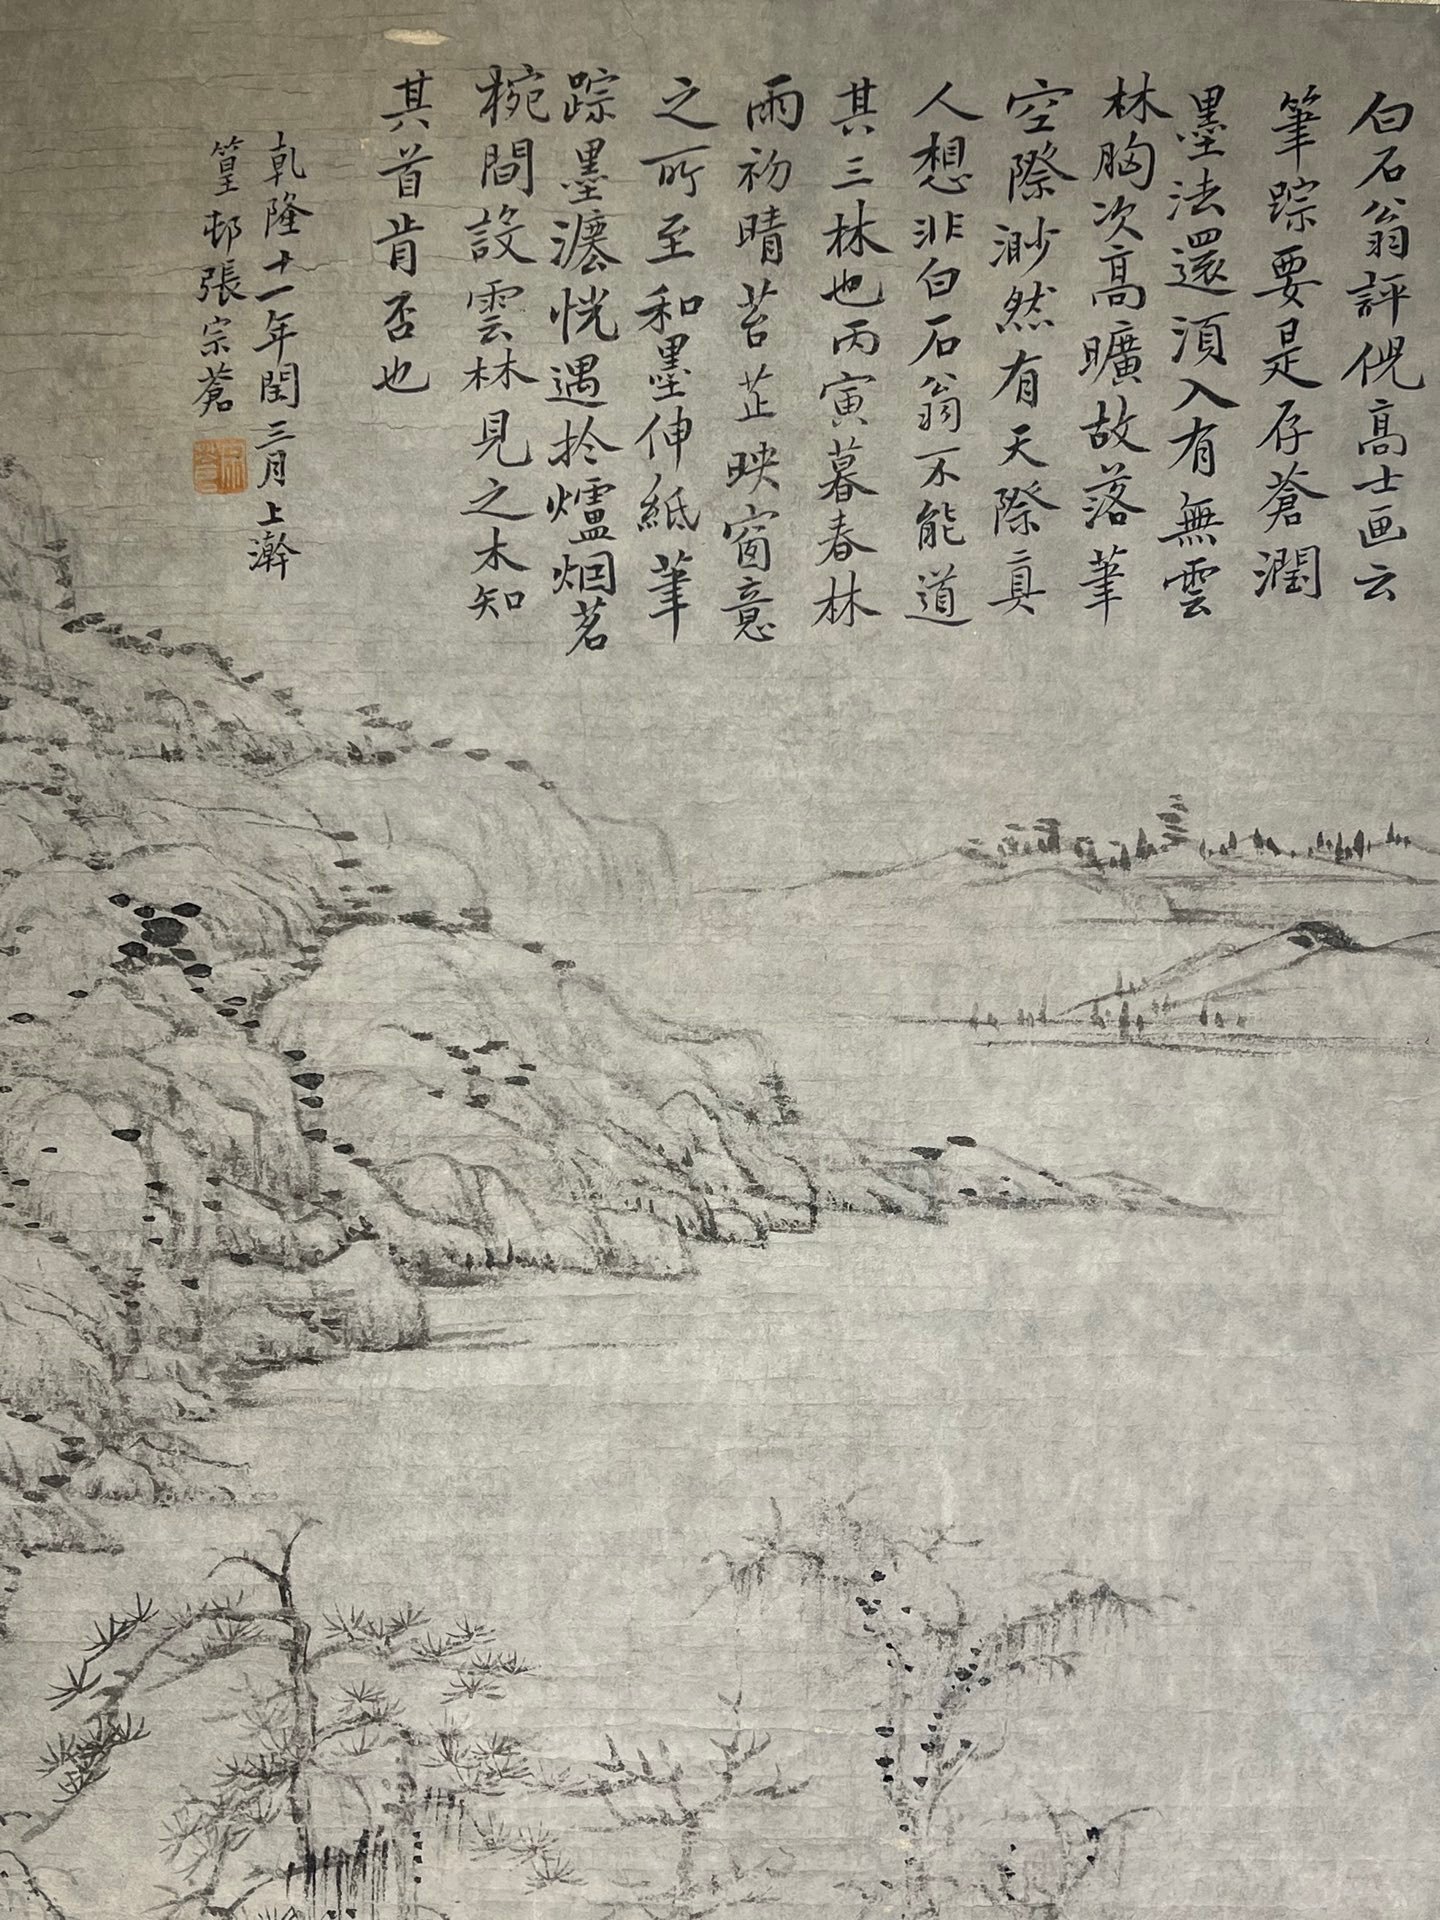 白石翁評倪高士画云
筆踪要是存蒼潤
墨法還須入有無雲
林胸次高曠故落筆
空際渺然有天際真
人想非白石翁不能道
其三林也丙寅暮春林
雨初晴苔芷映窗意
之所至和墨伸紙筆
踪墨瀋恍遇扵爐烟茗
椀間設雲林見之未知
其首肯否也
乾隆十一年閏三月上澣
篁邨張宗蒼